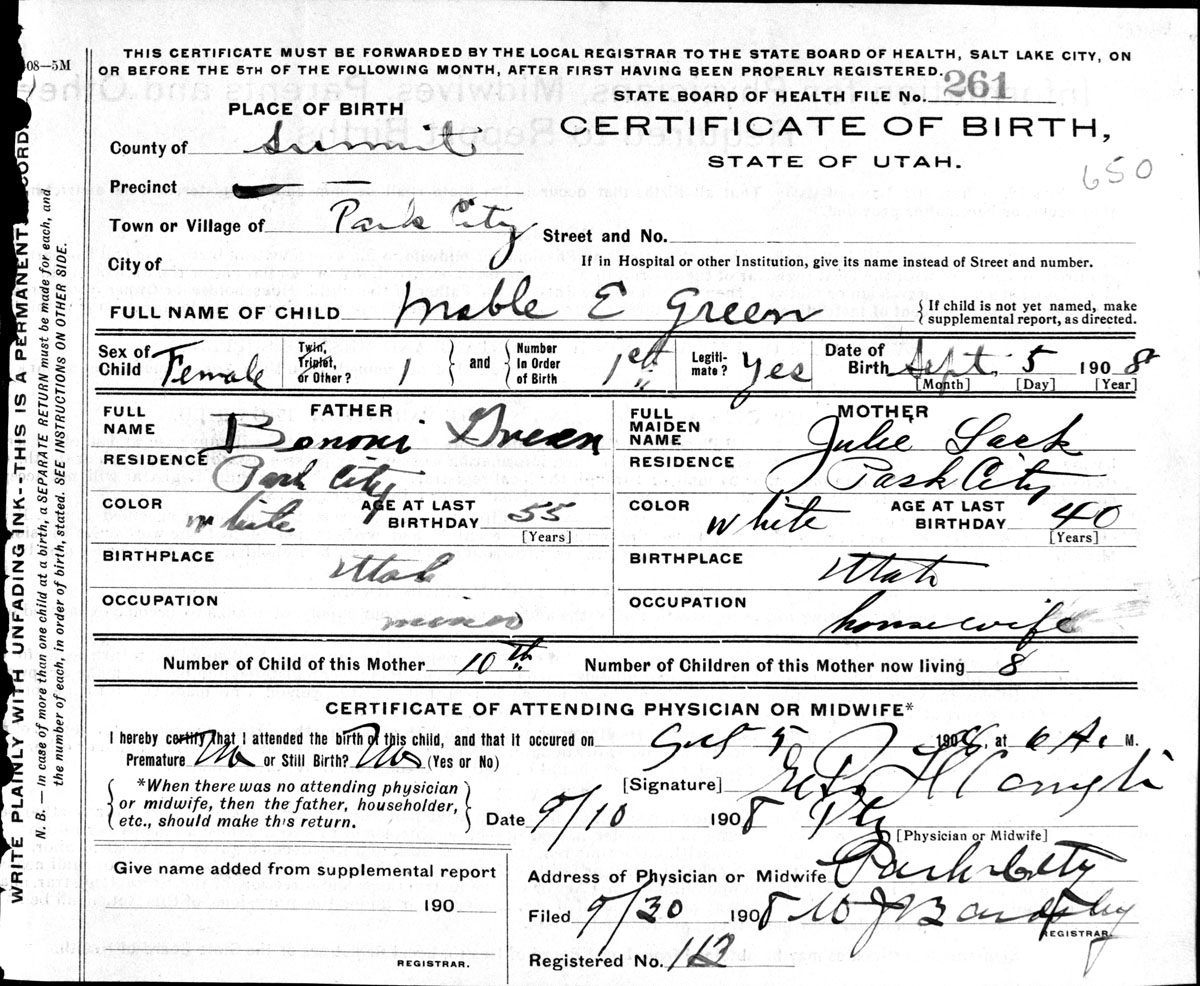 THIS CERTIFICATE MUST BE FORWARDED BY THE LOCAL REGISTRAR TO THE STATE BOARD OF HEALTH, SALT LAKE CITY, ON
OR BEFORE THE 5TH OF THE FOLLOWING MONTH, AFTER FIRST HAVING BEEN PROPERLY REGISTERED.
08—5M
STATE BOARD OF HEALTH FILE No. 261
PLACE OF BIRTH
CERTIFICATE OF BIRTH,
STATE OF UTAH.
650
County of Summit
Precinct
Town or Village of Park City
Street and No.
City of
If in Hospital or other Institution, give its name instead of Street and number.
FULL NAME OF CHILD Mable E Green
{ If child is not yet named, make
supplemental report, as directed.
Sex of Child Female
Twin, Triplet, or Other? 1 } and { Number In Order of Birth 1st
Legiti-mate? Yes
Date of Birth Sept. 5 1908
[Month] [Day] [Year]
FATHER
FULL NAME Benoni Green
RESIDENCE Park City
COLOR white AGE AT LAST BIRTHDAY 55
[Years]
BIRTHPLACE Utah
OCCUPATION miner
MOTHER
FULL MAIDEN NAME Julie Lark
RESIDENCE Park City
COLOR white AGE AT LAST BIRTHDAY 40
[Years]
BIRTHPLACE Utah
OCCUPATION housewife
Number of Child of this Mother 10th Number of Children of this Mother now living 8
CERTIFICATE OF ATTENDING PHYSICIAN OR MIDWIFE*
I hereby certify that I attended the birth of this child, and that it occured on Sept 5 1908, at 6 A. M.
Premature No or Still Birth? No (Yes or No)
[Signature]
*When there was no attending physician
or midwife, then the father, householder,
etc., should make this return.
Date 9/10 1908
[Physician or Midwife]
Address of Physician or Midwife Park City
Give name added from supplemental report
190
REGISTRAR.
Filed 9/30 1908 W J Bardsley
REGISTRAR.
Registered No. 113
WRITE PLAINLY WITH UNFADING INK—THIS IS A PERMANENT RECORD.
N. B. — In case of more than one child at a birth, a SEPARATE RETURN must be made for each, and
the number of each, in order of birth, stated. SEE INSTRUCTIONS ON OTHER SIDE.